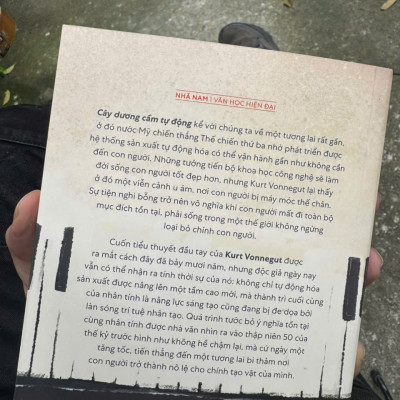 NHÃ NAM | VĂN HỌC HIỆN ĐẠI
Cây dương cầm tự động kể với chúng ta về một tương lai rất gần,
ở đó nước Mỹ chiến thắng Thế chiến thứ ba nhờ phát triển được
hệ thống sản xuất tự động hóa có thể vận hành gần như không cần
đến con người. Những tưởng tiến bộ khoa học công nghệ sẽ làm
đời sống con người tốt đẹp hơn, nhưng Kurt Vonnegut lại thấy
ở đó một viễn cảnh u ám, nơi con người bị máy móc thế chân.
Sự tiện nghi bỗng trở nên vô nghĩa khi con người mất đi toàn bộ
mục đích tồn tại, phải sống trong một thế giới không ngừng
loại bỏ chính con người.
Cuốn tiểu thuyết đầu tay của Kurt Vonnegut được
ra mắt cách đây đã bảy mươi năm, nhưng độc giả ngày nay
vẫn có thể nhận ra tính thời sự của nó: không chỉ tự động hóa
sản xuất được nâng lên một tầm cao mới, mà thành trì cuối cùng
của nhân tính là năng lực sáng tạo cũng đang bị đe dọa bởi
làn sóng trí tuệ nhân tạo. Quá trình tước bỏ ý nghĩa tồn tại
cùng nhân tính được nhà văn nhìn ra vào thập niên 50 của
thế kỷ trước hình như không hề chậm lại, mà cứ ngày một
tăng tốc, tiến thẳng đến một tương lai bi thảm nơi
con người trở thành nô lệ cho chính tạo vật của mình.